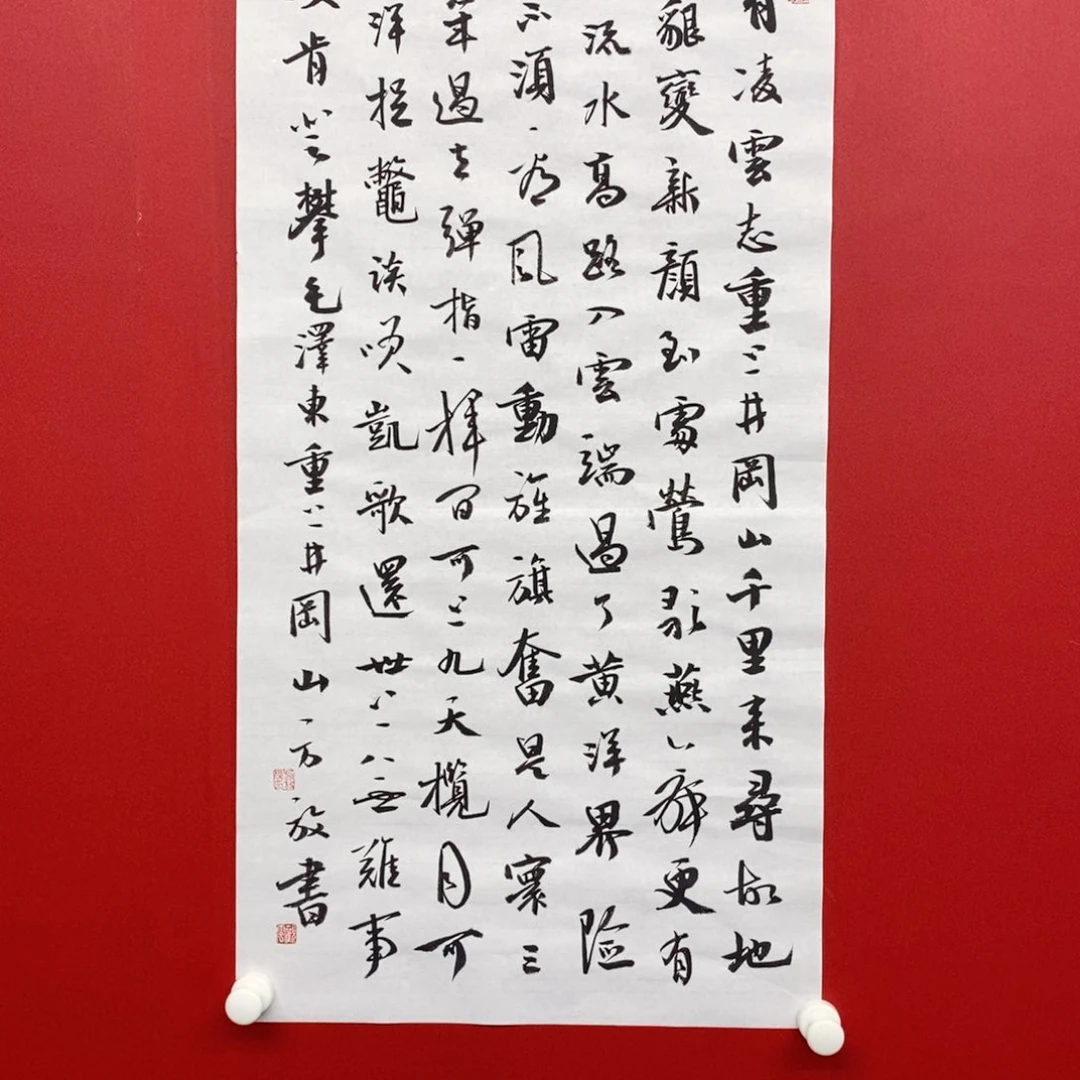 有凌雲志重上井岡山千里来尋故地
貌變新顔到處鶯歌燕舞更有
流水高路入雲端過了黄洋界險
不須看風雷動旌旗奮是人寰三
年過去彈指一揮間可上九天攬月可
洋捉鼈談笑凱歌還世上無難事
肯登攀毛澤東重上井岡山方放書